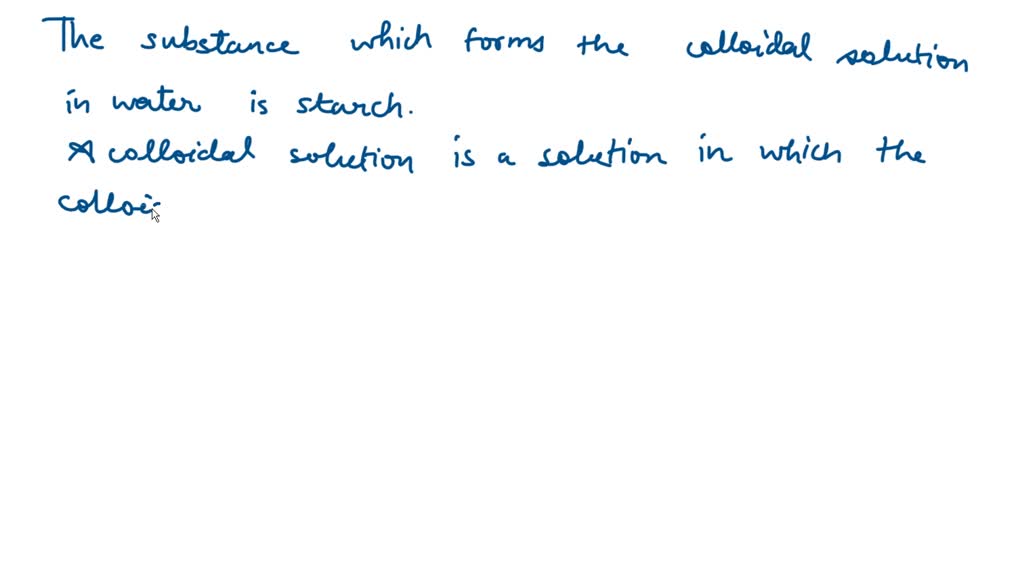 The substance which forms the colloidal solution
in water is starch.
A colloidal solution is a solution in which the
colloi